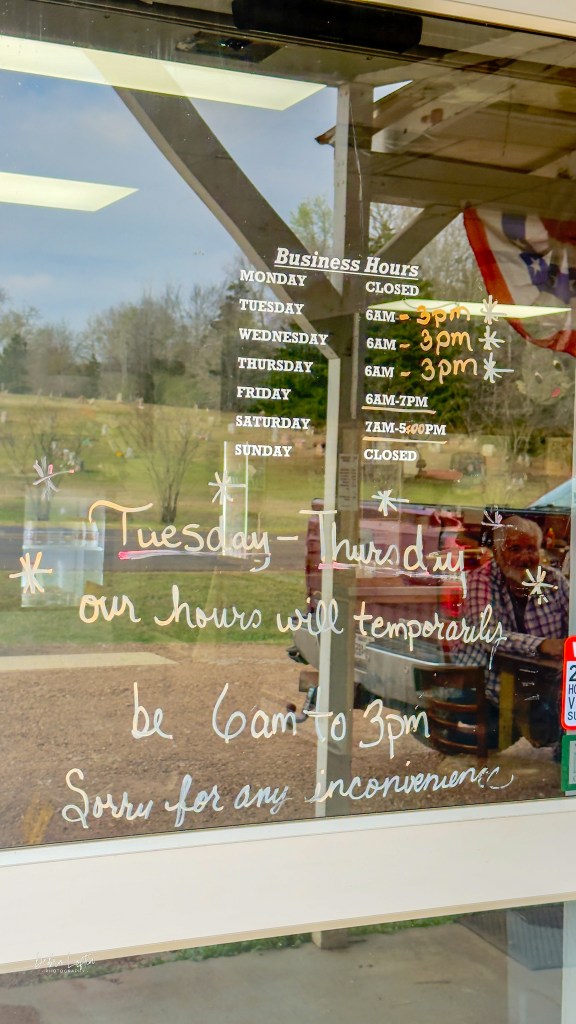 Business Hours
MONDAY CLOSED
TUESDAY 6AM - 3pm
WEDNESDAY 6AM - 3pm
THURSDAY 6AM - 3pm
FRIDAY 6AM-7PM
SATURDAY 7AM-5:00PM
SUNDAY CLOSED
Tuesday - Thursday
our hours will temporarily
be 6am to 3pm
Sorry for any inconvenience